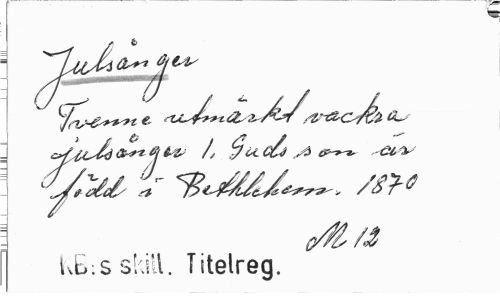 Julsånger
Tvenne utmärkt vackra
julsånger 1. Guds son är
född i Bethlehem. 1870
M 12
KB:s skill. Titelreg.